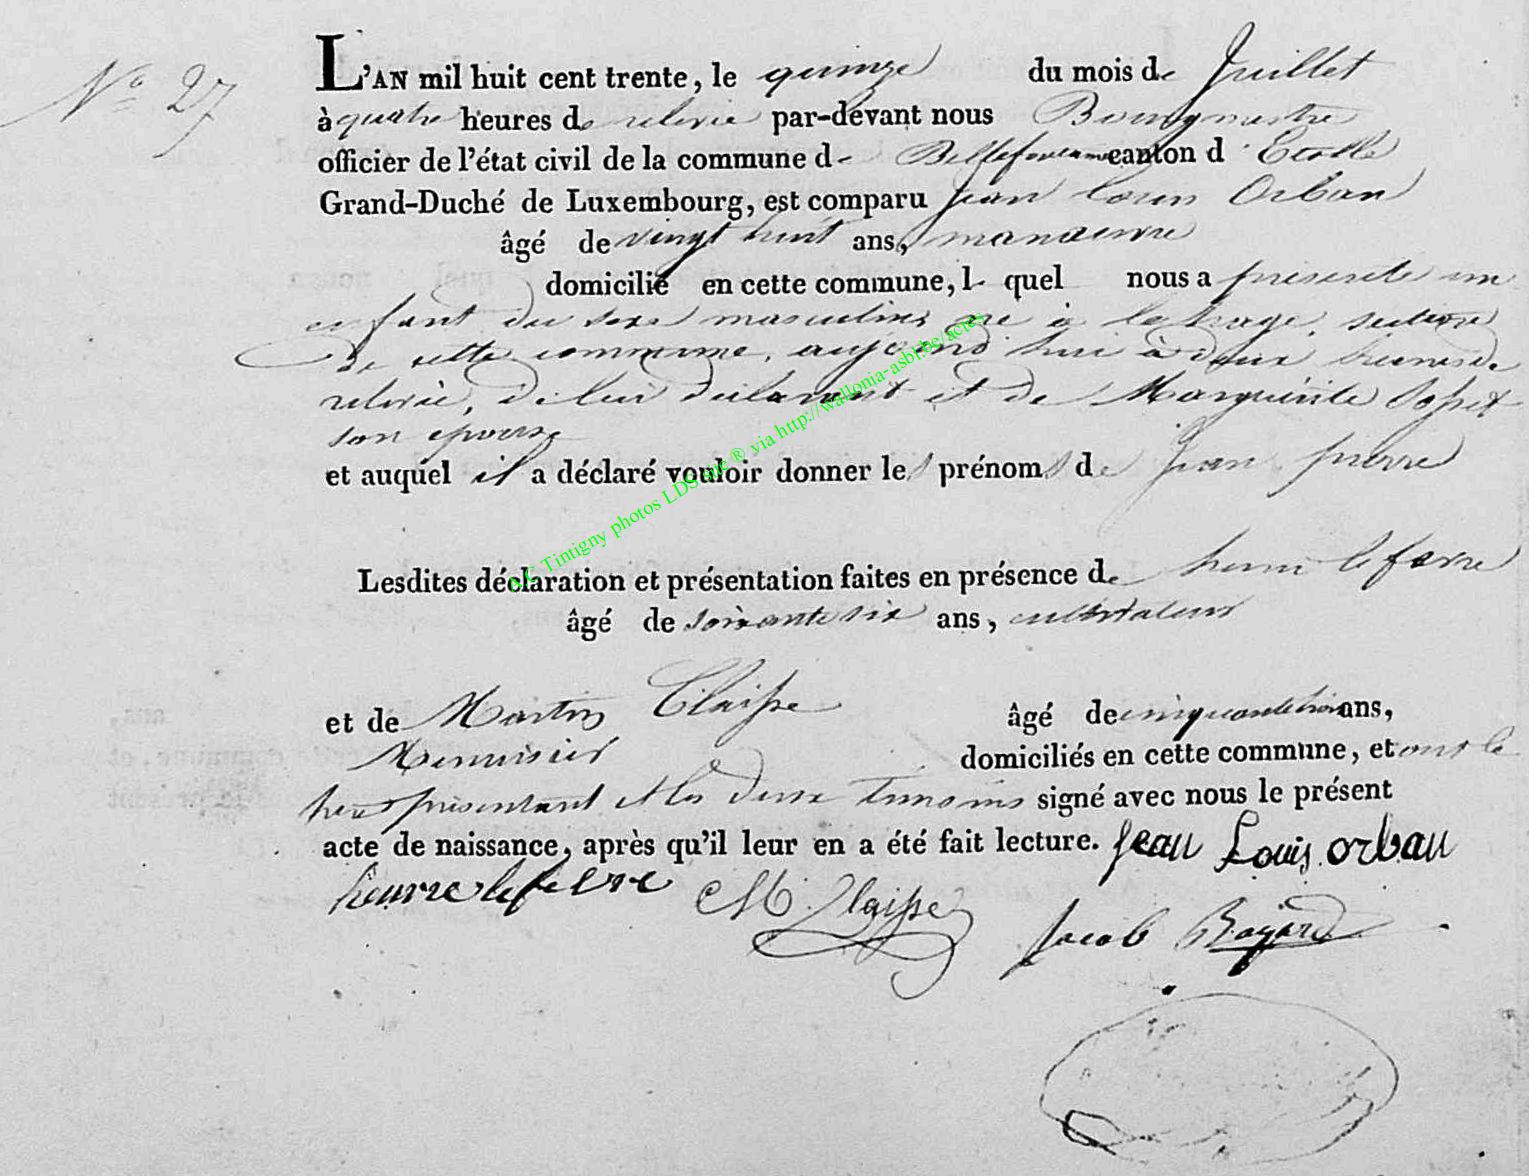 N° 27
L'AN mil huit cent trente, le quinze du mois de Juillet
à quatre heures de relevée par-devant nous Bourgmestre
officier de l'état civil de la commune de Bellefontaine canton d'Etalle
Grand-Duché de Luxembourg, est comparu Jean Louis Orban
âgé de vingt huit ans, manœuvre
domicilié en cette commune, le quel nous a présenté un
enfant du sexe masculin, né à lahage, section
de cette commune, aujourd'hui à deux heures de
relevée, de lui déclarant et de Marguérite
son epouse
et auquel il a déclaré vouloir donner les prénoms de Jean pierre
Lesdites déclaration et présentation faites en présence de henri lefevre
âgé de soixante six ans, cultivateur
et de Martin Claisse âgé de cinquante trois ans,
Menuisier domiciliés en cette commune, et ont le
présentant et les deux temoins signé avec nous le présent
acte de naissance, après qu'il leur en a été fait lecture. Jean Louis orban
henrre lefevre M. Claisse Jacob Bayard
A.C Tintigny photos LDS site ® via http://wallonia-asbl.be/actes